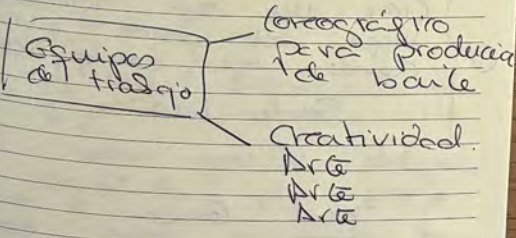 Equipos
del trabajo
Coreográfico
para producia
de baile
Creatividad.
Arte
Arte
Arte